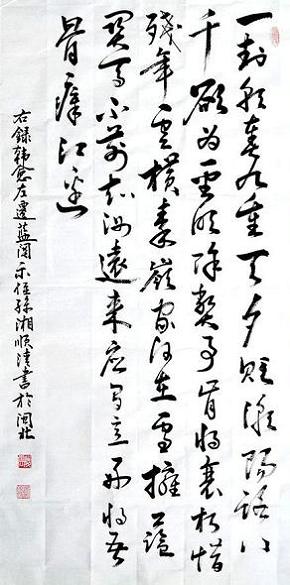 一封朝奏九重天夕貶潮陽路八
千欲为雲明除弊事肯將衰朽惜
殘年雲橫秦嶺家何在雪擁蓝
関馬不前知汝遠来應有意好收吾
骨瘴江邊
右録韩愈左遷蓝関示侄孫湘順清書於閩北